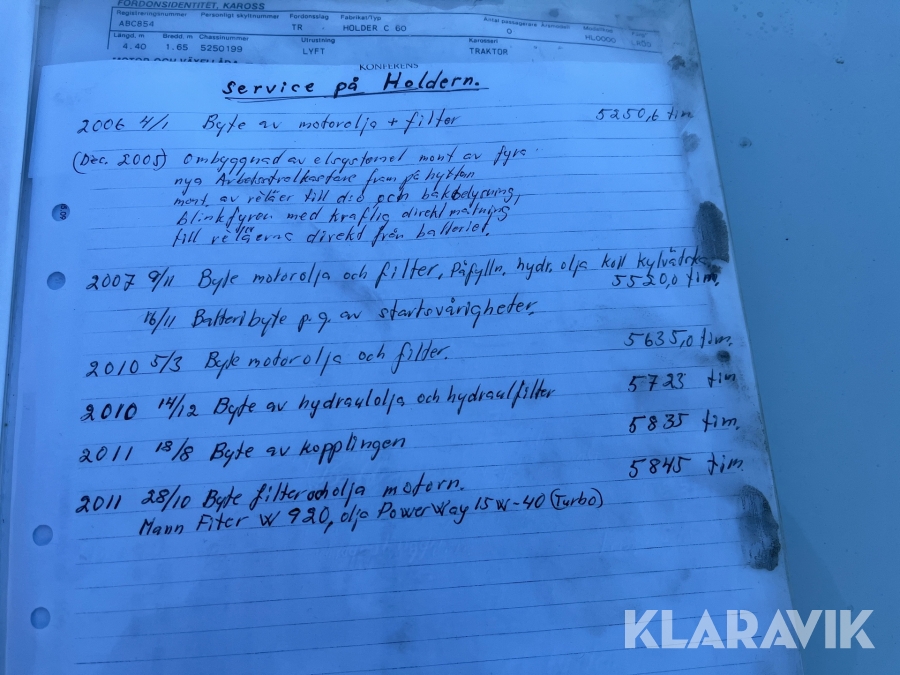 FORDONSIDENTITET, KAROSS
Registreringsnummer Personligt skyltnummer Fordonsslag Fabrikat/Typ Antal passagerare
ABC854 TR HOLDER C 60 0
Längd. m Bredd. m Chassinummer Utrustning Karosseri Färg
4.40 1.65 5250199 LYFT TRAKTOR
KONFERENS
Service på Holdern.
2006 4/1 Byte av motorolja + filter 5250,6 tim
(Dec. 2005) Ombyggnad av elsystemet mont av fyra
nya Arbetsstralkastare fram på hyttan
mont, av reläer till dio och bakbelysning,
blinkfyren med kraftig direkt matning
till reläerna direkt från batteriet.
2007 9/11 Byte motorolja och filter, Påfylln. hydr. olja koll
5520,0 tim.
16/11 Batteribyte p.g. av startsvårigheter.
2010 5/3 Byte motorolja och filter. 5635,0 tim.
2010 14/12 Byte av hydraulolja och hydraulfilter 5723 tim
2011 18/8 Byte av kopplingen 5835 tim.
2011 28/10 Byte filter och olja motorn. 5845 tim.
Mann Filter W 920, olja PowerWay 15W-40 (Turbo)
KLARAVIK